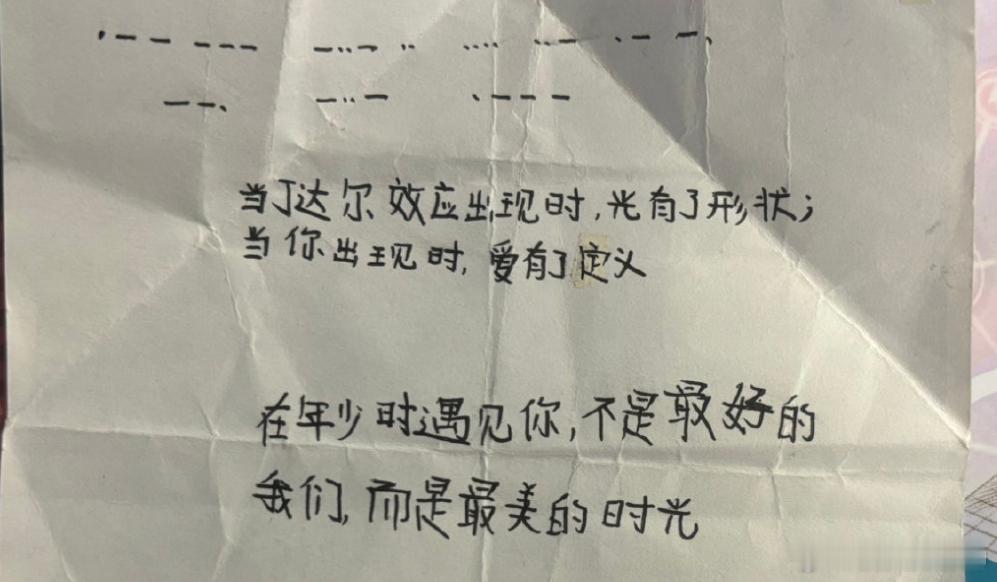 ·−− −−− −··− ·· ···· ··− ·− −·
−−· −··− ·−−−
当丁达尔效应出现时,光有了形状;
当你出现时,爱有了定义
在年少时遇见你,不是最好的
我们,而是最美的时光